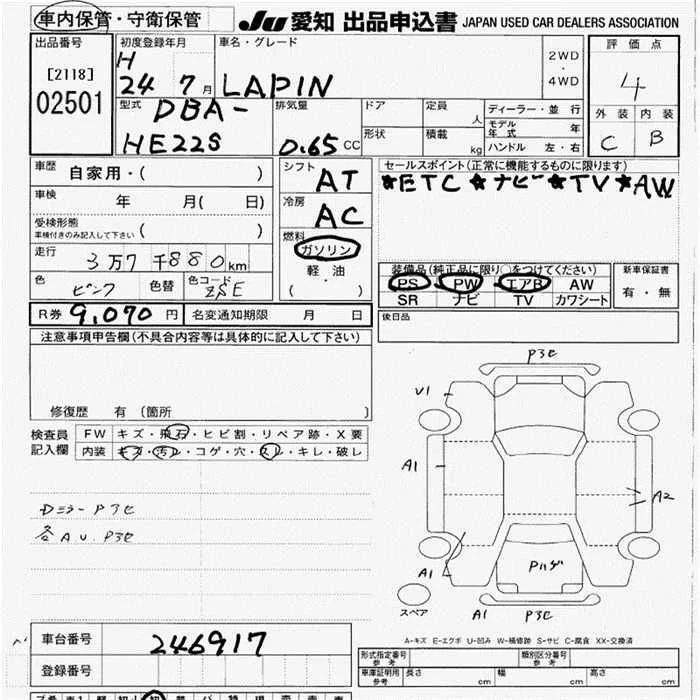 車内保管・守衛保管 JU 愛知 出品申込書 JAPAN USED CAR DEALERS ASSOCIATION
出品番号 初度登録年月 車名・グレード 2WD ・ 4WD 評価点
[2118] H 24 7月 LAPIN 4
02501 型式 DBA- 排気量 ドア 定員 人 ディーラー・並 行 外装 内装
HE22S 0.65 CC 形状 積載 kg モデル年式 年 C B
ハンドル 左・右
車歴 自家用・( ) シフト AT セールスポイント(正常に機能するものに限ります)
車検 年 月( 日) 冷房 AC ★ETC ★ナビ ★TV ★AW
受検形態 ( )
車検付きのみ記入して下さい
燃料 ガソリン
走行 3万7千880km 軽 油
装備品(純正品に限り○をつけてください) 新車保証書
色 ピンク 色替 色コード ZSE ・ ( )
PS PW エアB AW 有・無
SR ナビ TV カワシート
R券 9,070円 名変通知期限 月 日 後日品
注意事項申告欄(不具合内容等は具体的に記入して下さい)
修復歴 有 (箇所 )
検査員 FW キズ・飛石・ヒビ割・リペア跡・X要
記入欄 内装 キズ・汚レ・コゲ・穴・スレ・キレ・破レ
Dミラー P3セ
各A.U. P3セ
P3セ
V1
A1
A2
A1
Pハゲ
スペア
A1 P3セ
A-キズ E-エクボ U-凹み W-補修跡 S-サビ C-腐食 XX-交換済
車台番号 246917
登録番号
形式指定番号 参考 類別区分番号 参考
車庫証明用 参考 長さ cm 幅 cm 高さ cm